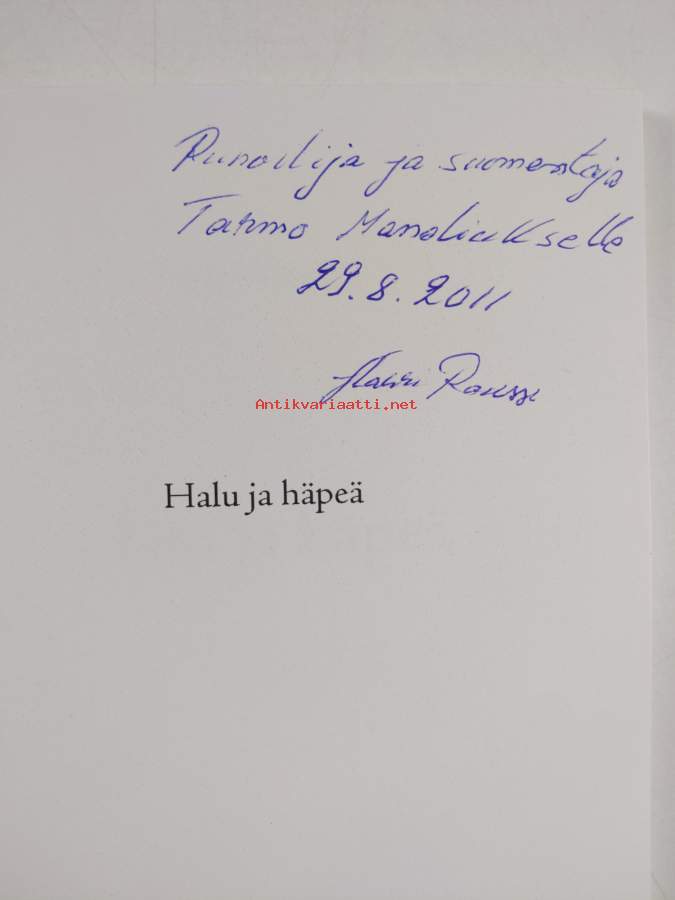 Runoilija ja suomentaja
Tarmo Maneliukselle
29.8.2011
Antikvariaatti.net
Halu ja häpeä